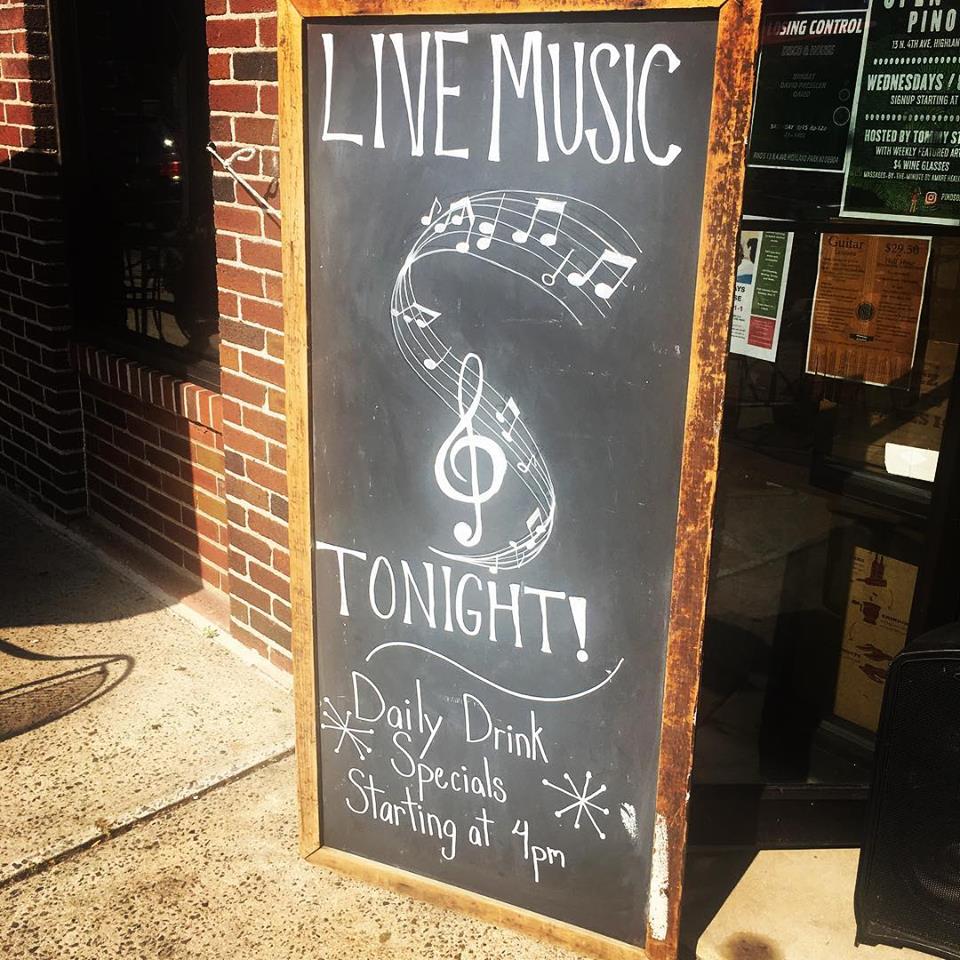 LIVE MUSIC
TONIGHT!
Daily Drink
Specials
Starting at 4pm
LOSING CONTROL
OPEN
PINO
13 N. 4TH AVE, HIGHLAN
WEDNESDAYS /
SIGNUP STARTING AT
HOSTED BY TOMMY ST
WITH WEEKLY FEATURED ART
$4 WINE GLASSES
Guitar $29.50
Half Hour